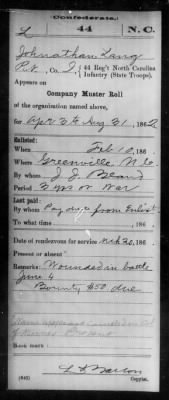 Confederate.
L 44 N.C.
Johnathan Lang
Pvt, Co. I, 44 Reg't North Carolina
Infantry (State Troops).
Appears on
Company Muster Roll
of the organization named above,
for Apr 30 to Aug 31, 1862
Enlisted:
When Feb 10, 186
Where Greenville N.C.
By whom J. J. Beard
Period 3 yrs or War
Last paid:
By whom Pay due from Enlist
To what time , 186
Date of rendezvous for service Mch 20, 186
Present or absent
Remarks: Wounded in battle
June 4
Bounty $50 due
Name appears
Book mark:
(642) Copyist.